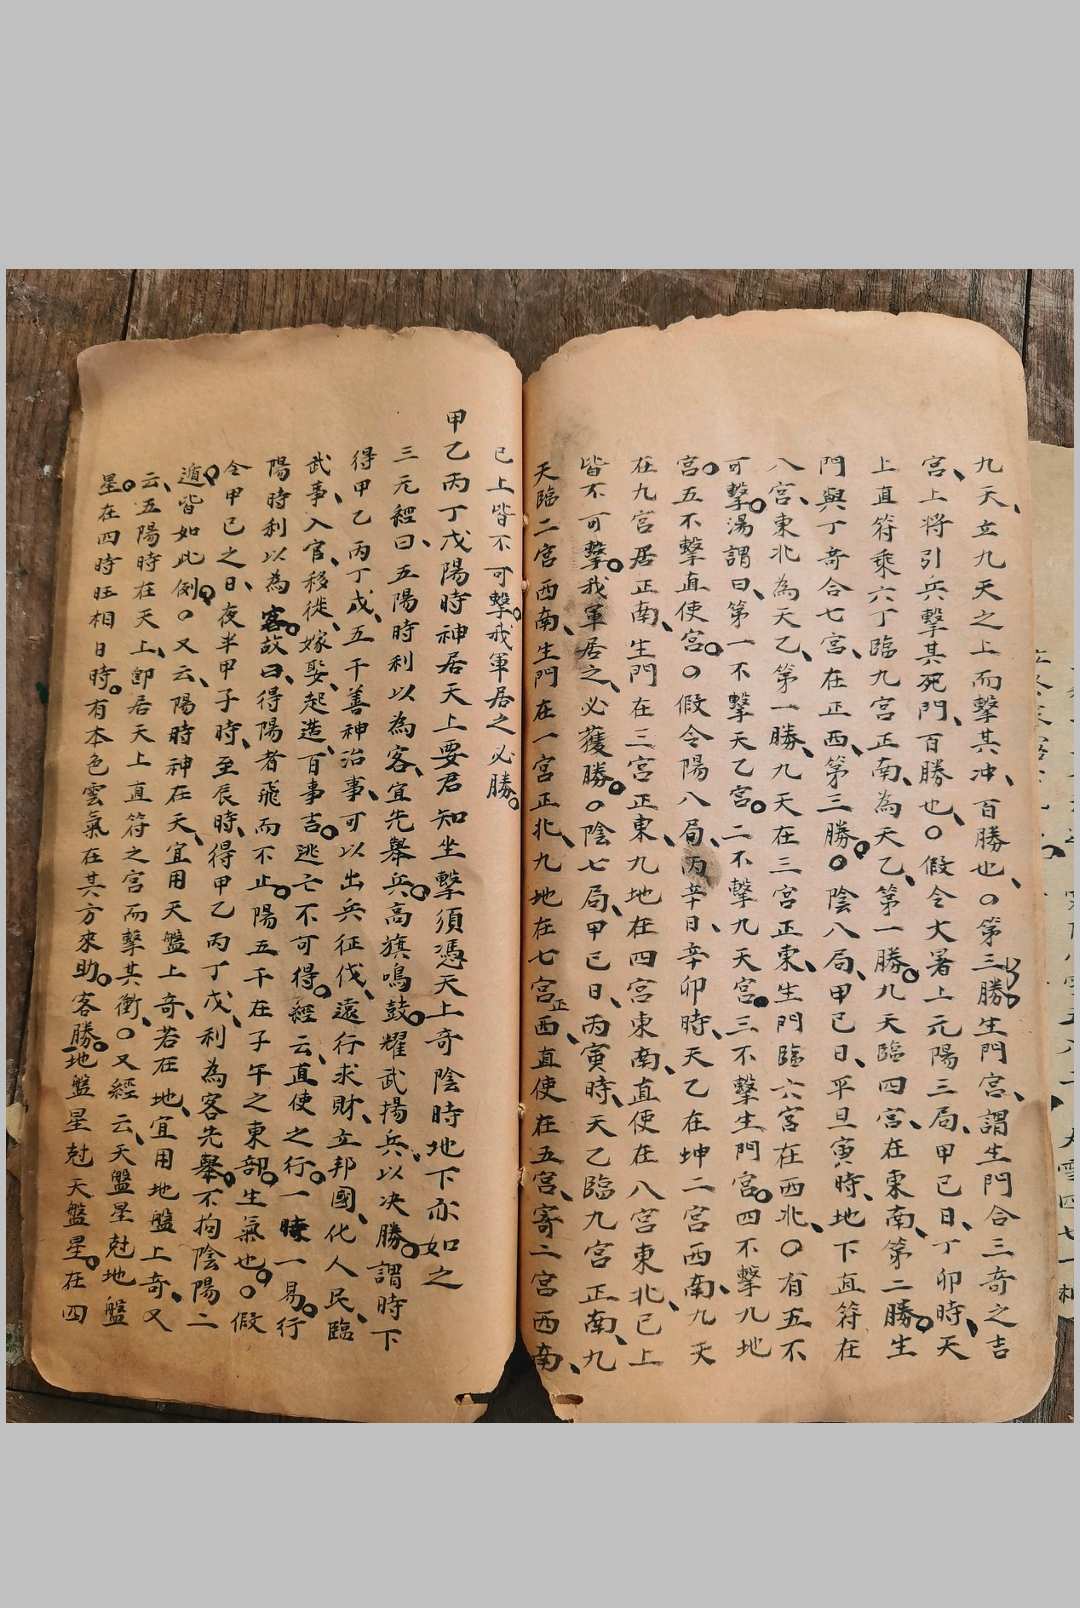 九天、立九天之上而擊其冲、百勝也、○第三勝生門宮、謂生門合三奇之吉
宮、上將引兵擊其死門、百勝也、○假令大暑上元陽三局、甲己日、丁卯時、天
上直符乘六丁臨九宮正南、為天乙、第一勝。九天臨四宮、在東南、第二勝。生
門與丁奇合七宮、在正西、第三勝。○陰八局、甲己日、平旦寅時、地下直符在
八宮、東北為天乙、第一勝、九天在三宮正東、生門臨六宮在西北、○有五不
可擊。湯謂曰、第一不擊天乙宮。二不擊九天宮。三不擊生門宮。四不擊九地
宮。五不擊直使宮。○假令陽八局、丙辛日、辛卯時、天乙在坤二宮西南、九天
在九宮居正南、生門在三宮正東、九地在四宮東南、直使在八宮東北、已上
皆不可擊。我軍居之、必獲勝。○陰七局、甲己日、丙寅時、天乙臨九宮正南、九
天臨二宮西南、生門在一宮正北、九地在七宮正西、直使在五宮、寄二宮西南、
已上皆不可擊。我軍居之必勝。
甲乙丙丁戊陽時神居天上要君知坐擊須憑天上奇陰時地下亦如之
三元經、曰、五陽時利以為客、宜先舉兵。高旗鳴鼓。耀武揚兵、以决勝。謂時下
得甲乙丙丁戊、五千善神治事、可以出兵征伐、遠行求財、立邦國、化人民、臨
武事、入官、移徙、嫁娶、起造、百事吉。逃亡不可得。經云、直使之行。一時一易。行
陽時利以為客。故曰、得陽者飛而不止。陽五千在子午之東部。生氣也。○假
令甲己之日、夜半甲子時、至辰時、得甲乙丙丁戊、利為客先舉。不拘陰陽二
遁。皆如此例。○又云、陽時神在天、宜用天盤上奇、若在地、宜用地盤上奇、又
云、五陽時在天上、即居天上直符之宮而擊其衝、○又經云、天盤星尅地盤
星。在四時旺相日時。有本色雲氣在其方來助。客勝。地盤星尅天盤星。在四